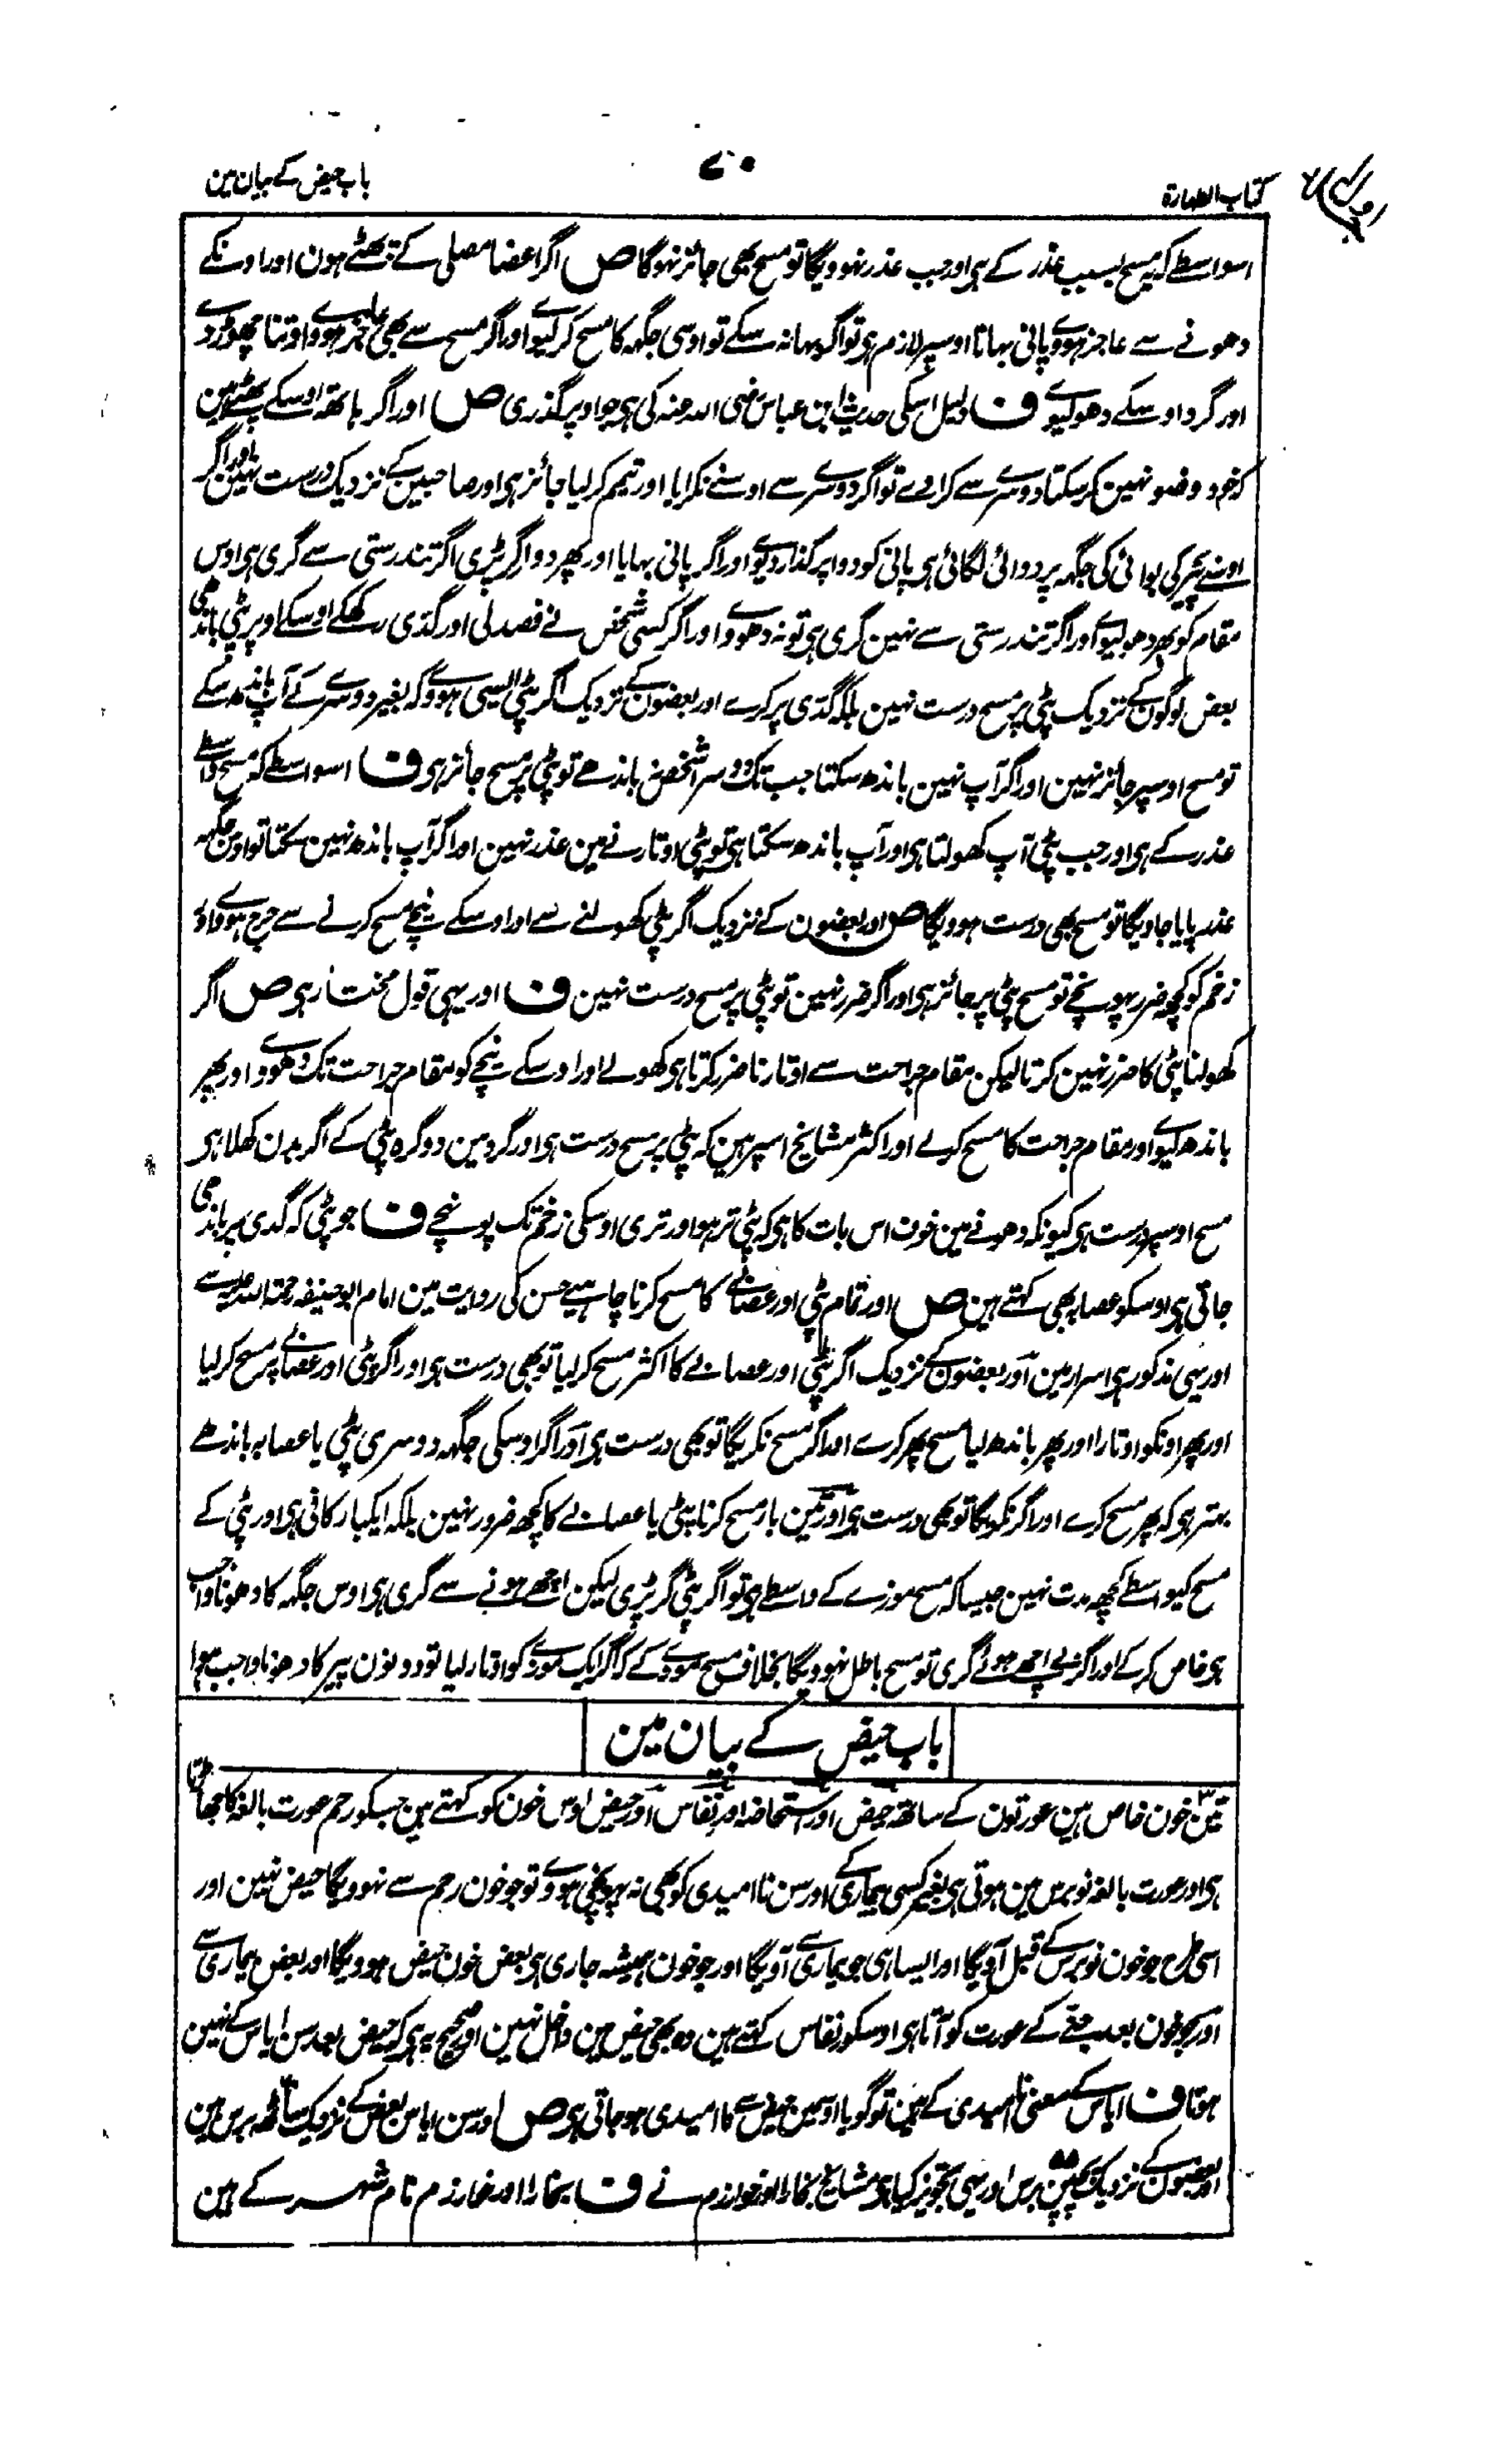 کتاب الطہارۃ
۷۰
باب حیض کے بیان مین
اسواسطے کہ مسح بسبب عذر کے ہی اور جب عذر نہوویگا تو مسح بھی جائز نہوگا ص اگر اعضا مصلی کے پھٹے ہون اور اونکے
دھونے سے عاجز ہووے پانی بہانا اوسپر لازم ہی تو اگر بہا نہ سکے تو اوسی جگہہ کا مسح کر لیوے اور اگر مسح سے بھی عاجز ہووے اوتنا چھوڑ دے
اور گرد اوسکے دھو لیوے ف دلیل اسکی حدیث ابن عباس رضی اللہ عنہ کی ہی جو اوپر گذری ص اور اگر ہاتھہ اوسکے پھٹے ہین
کہ خود وضو نہین کر سکتا دوسرے سے کرا دے تو اگر دوسرے سے اوسنے نکرایا اور تیمم کر لیا جائز ہی اور صاحبین کے نزدیک درست نہین اور اگر
اوسنے پیر کی بوائی کی جگہہ پر دوائی لگائی ہی پانی کو دوا پر گذار دیوے اور اگر پانی بہایا اور پھر دوا گر پڑی اگر تندرستی سے گری ہی اوس
مقام کو پھر دھو لیوے اور اگر تندرستی سے نہین گری ہی تو نہ دھووے اور اگر کسی شخص نے فصد لی اور گدی رکھکے اوسکے اوپر پٹی باندھی
بعض لوگون کے نزدیک پٹی پر مسح درست نہین بلکہ گدی پر کرے اور بعضون کے نزدیک اگر پٹی ایسی ہووے کہ بغیر دوسرے کے آپ باندھ سکے
تو مسح اوسپر جائز نہین اور اگر آپ نہین باندھ سکتا جب تک دوسرا شخص نہ باندھے تو پٹی پر مسح جائز ہی ف اسواسطے کہ مسح واسطے
عذر کے ہی اور جب پٹی آپ کھولتا ہی اور آپ باندھ سکتا ہی تو پٹی اوتارنے مین عذر نہین اور اگر آپ باندھ نہین سکتا تو اوس جگہہ
عذر پایا جاویگا تو مسح بھی درست ہوویگا ص اور بعضون کے نزدیک اگر پٹی کھولنے سے اور اوسکے نیچے مسح کرنے سے حرج ہووے اور
زخم کو کچھ ضرر پہونچے تو مسح پٹی پر جائز ہی اور اگر ضرر نہین تو پٹی پر مسح درست نہین ف اور یہی قول مختار ہی ص اگر
کھولنا پٹی کا ضرر نہین کرتا لیکن مقام جراحت سے اوتارنا ضرر کرتا ہی کھولے اور اوسکے نیچے کو مقام جراحت تک دھووے اور پھر
باندھ لیوے اور مقام جراحت کا مسح کرلے اور اکثر مشایخ اسپر ہین کہ پٹی پر مسح درست ہی اور گرد مین دو گرہ پٹی کے اگر بدن کھلا ہی
مسح اوسپر درست ہی کیونکہ دھونے مین خوف اس بات کا ہی کہ پٹی تر ہو اور تری اوسکی زخم تک پونہچے ف جو پٹی کہ گدی پر باندھی
جاتی ہی اوسکو عصابہ بھی کہتے ہین ص اور تمام پٹی اور عصابے کا مسح کرنا چاہیے حسن کی روایت مین امام ابو حنیفہ رحمۃ اللہ علیہ سے
اور یہی مذکور ہی اسرار مین اور بعضون کے نزدیک اگر پٹی اور عصابے کا اکثر مسح کر لیا تو بھی درست ہی اور اگر پٹی اور عصابے پر مسح کر لیا
اور پھر اونکو اوتارا اور پھر باندھ لیا مسح پھر کرے اور اگر مسح نکریگا تو بھی درست ہی اور اگر اوسکی جگہہ دوسری پٹی یا عصابہ باندھے
بہتر ہی کہ پھر مسح کرے اور اگر نکریگا تو بھی درست ہی اور تین بار مسح کرنا پٹی یا عصابے کا کچھ ضرور نہین بلکہ ایکبار کافی ہی اور پٹی کے
مسح کیواسطے کچھ مدت نہین جیسا کہ مسح موزے کے واسطے ہی تو اگر پٹی گر پڑی لیکن اچھے ہونے سے گری ہی اوس جگہہ کا دھونا واجب
ہی خاص کرکے اور اگر بے اچھے ہوئے گری تو مسح باطل نہوویگا بخلاف مسح موزے کے کہ اگر ایک موزے کو اوتار لیا تو دونون پیر کا دھونا واجب ہوا
باب حیض کے بیان مین
تین خون خاص ہین عورتون کے ساتھ حیض اور استحاضہ اور نفاس اور حیض اوس خون کو کہتے ہین جسکو رحم عورت بالغہ کا
ہی اور عورت بالغہ نو برس مین ہوتی ہی بغیر کسی بیماری کے اور سن نا امیدی کو بھی نہ پہونچی ہووے تو جو خون رحم سے نہوویگا حیض نہین اور
اسی طرح جو خون نو برس کے قبل آویگا اور ایسا ہی جو بیماری سے آویگا اور جو خون ہمیشہ جاری ہی بعض خون حیض ہوویگا اور بعض بیماری سے
اور جو خون بعد جننے کے عورت کو آتا ہی اوسکو نفاس کہتے ہین وہ بھی حیض مین داخل نہین اور صحیح یہ ہی کہ حیض بعد سن ایاس کے نہین
ہوتا ف ایاس کے معنی نا امیدی کے ہین تو گویا اوسمین حیض سے نا امیدی ہو جاتی ہی ص اور سن ایاس بعض کے نزدیک ساٹھ برس ہین
اور بعضون کے نزدیک پچپن ۵۵ برس اور یہی تجویز کیا ہی مشایخ بخارا اور خوارزم نے ف بخارا اور خوارزم نام شہر کے ہین